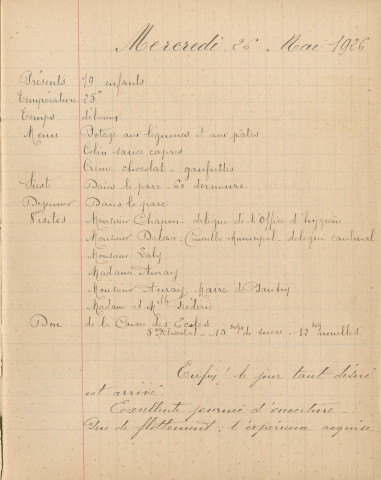 Mercredi 26 Mai 1926
Présents 79 enfants
Température 25°
Temps
Menu Potage aux légumes et aux pâtes
Colin sauce câpres
Crème chocolat - gaufrettes
Sieste Dans le parc - 60 dormeurs
Dejeuner Dans le parc
Visites Monsieur Chapon délégué de l'Office d'hygiène
Monsieur Conseiller Municipal - délégué cantonal
Monsieur Laly
Madame Auray
Monsieur Auray, Maire de Pantin
Madame et Melle Frédéric
Don de la Caisse des Ecoles
5 chocolat - 15 kgs de sucre - 12 nouilles
Enfin! le jour tant désiré
est arrivé.
Excellente journée d'ouverture -
Peu de flottement; l'expérience acquise